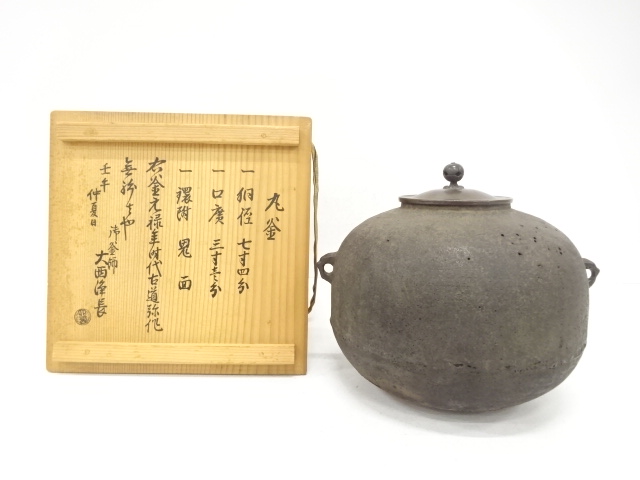 丸釜
一 胴径 七寸四分
一 口廣 三寸壱分
一 鐶附 鬼面
右釜元禄年時代古道弥作
無紛者也
壬午
仲夏日
御釜師
大西浄長